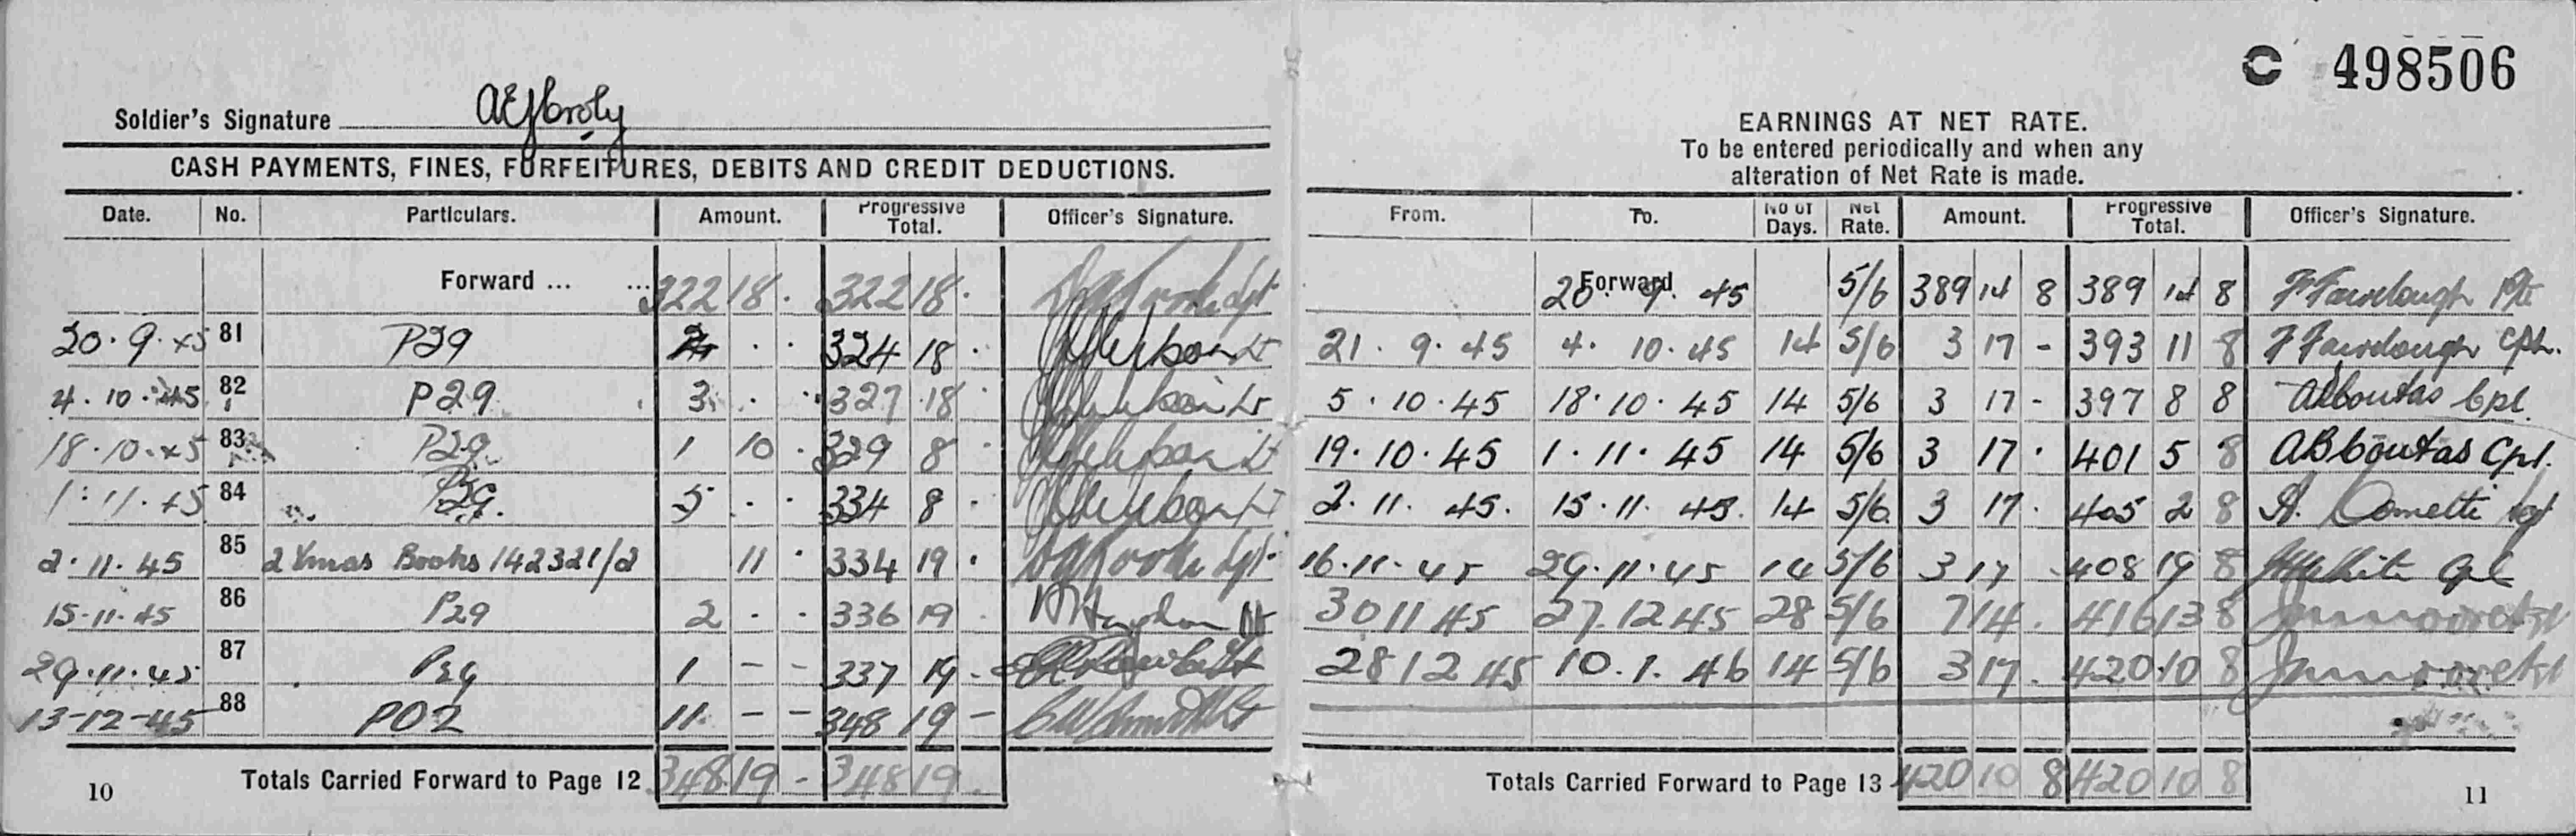 Soldier's Signature
CASH PAYMENTS, FINES, FORFEITURES, DEBITS AND CREDIT DEDUCTIONS.
Date. No. Particulars. Amount. Progressive Total. Officer's Signature.
Forward ... ... 322 18 . 322 18 .
20.9.45 81 P29 2 . . 324 18 .
4.10.45 82 P29 3 . . 327 18 .
18.10.45 83 P29 1 10 . 329 8 .
1.11.45 84 P29. 5 . . 334 8 .
2.11.45 85 2 Xmas Books 142321/2 11 . 334 19 .
15-11-45 86 P29 2 . . 336 19
29.11.45 87 P29 1 - - 337 19 -
13-12-45 88 P02 11 - - 348 19 -
Totals Carried Forward to Page 12 348 19 - 348 19
10
C 498506
EARNINGS AT NET RATE.
To be entered periodically and when any
alteration of Net Rate is made.
From. To. No of Days. Net Rate. Amount. Progressive Total. Officer's Signature.
Forward 20.9.45 5/6 389 14 8 389 14 8 F Fairclough
21.9.45 4.10.45 14 5/6 3 17 - 393 11 8 F Fairclough Cpl.
5.10.45 18.10.45 14 5/6 3 17 - 397 8 8 Cpl.
19.10.45 1.11.45 14 5/6 3 17 . 401 5 8 Cpl.
2.11.45. 15.11.45. 14 5/6 3 17 . 405 2 8 A. Cometti Sgt
16.11.45 29.11.45 14 5/6 3 17 408 19 8 White Cpl
30 11 45 27.12 45 28 5/6 7 14 . 416 13 8
28 12 45 10.1.46 14 5/6 3 17 . 420 10 8
Totals Carried Forward to Page 13 420 10 8 420 10 8
11